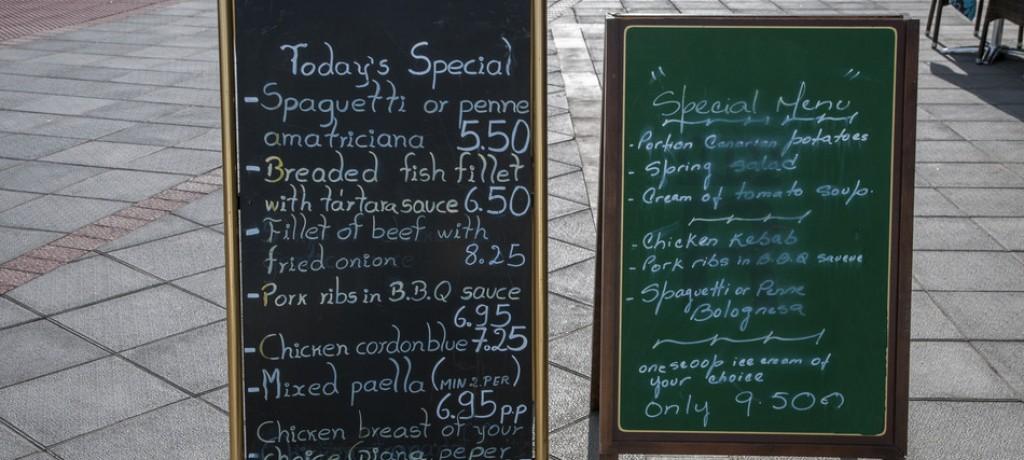 Today's Special
- Spaguetti or penne
amatriciana 5.50
- Breaded fish fillet
with tártara sauce 6.50
- Fillet of beef with
fried onion 8.25
- Pork ribs in B.B.Q sauce
6.95
- Chicken cordonblue 7.25
- Mixed paella (MIN.2.PER)
6.95 pp
Chicken breast of your
choice (Diana peper
" "
Special Menu
- Portion Canarian potatoes
- Spring salad
- Cream of tomato soup.
- Chicken Kebab
- Pork ribs in B.B.Q saucue
- Spaguetti or Penne
Bolognesa
one scoop ice cream of
your choice
only 9.50